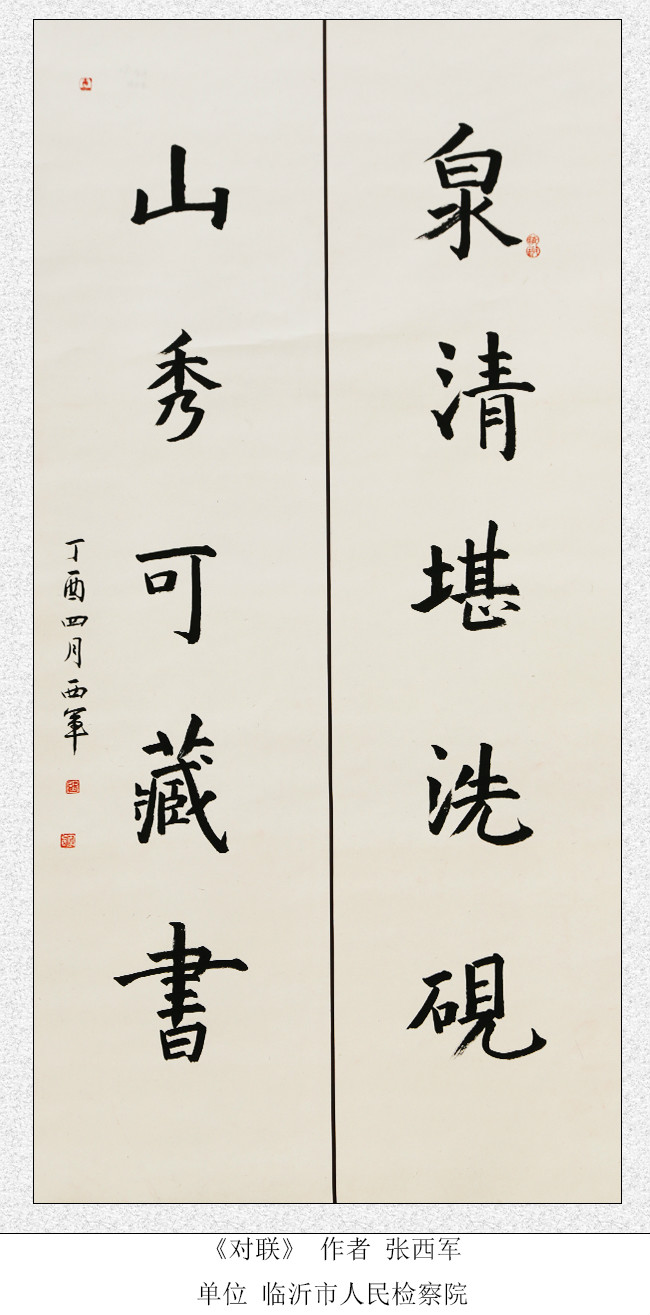 泉清堪洗硯
山秀可藏書
丁酉四月西軍
《对联》 作者 张西军
单位 临沂市人民检察院